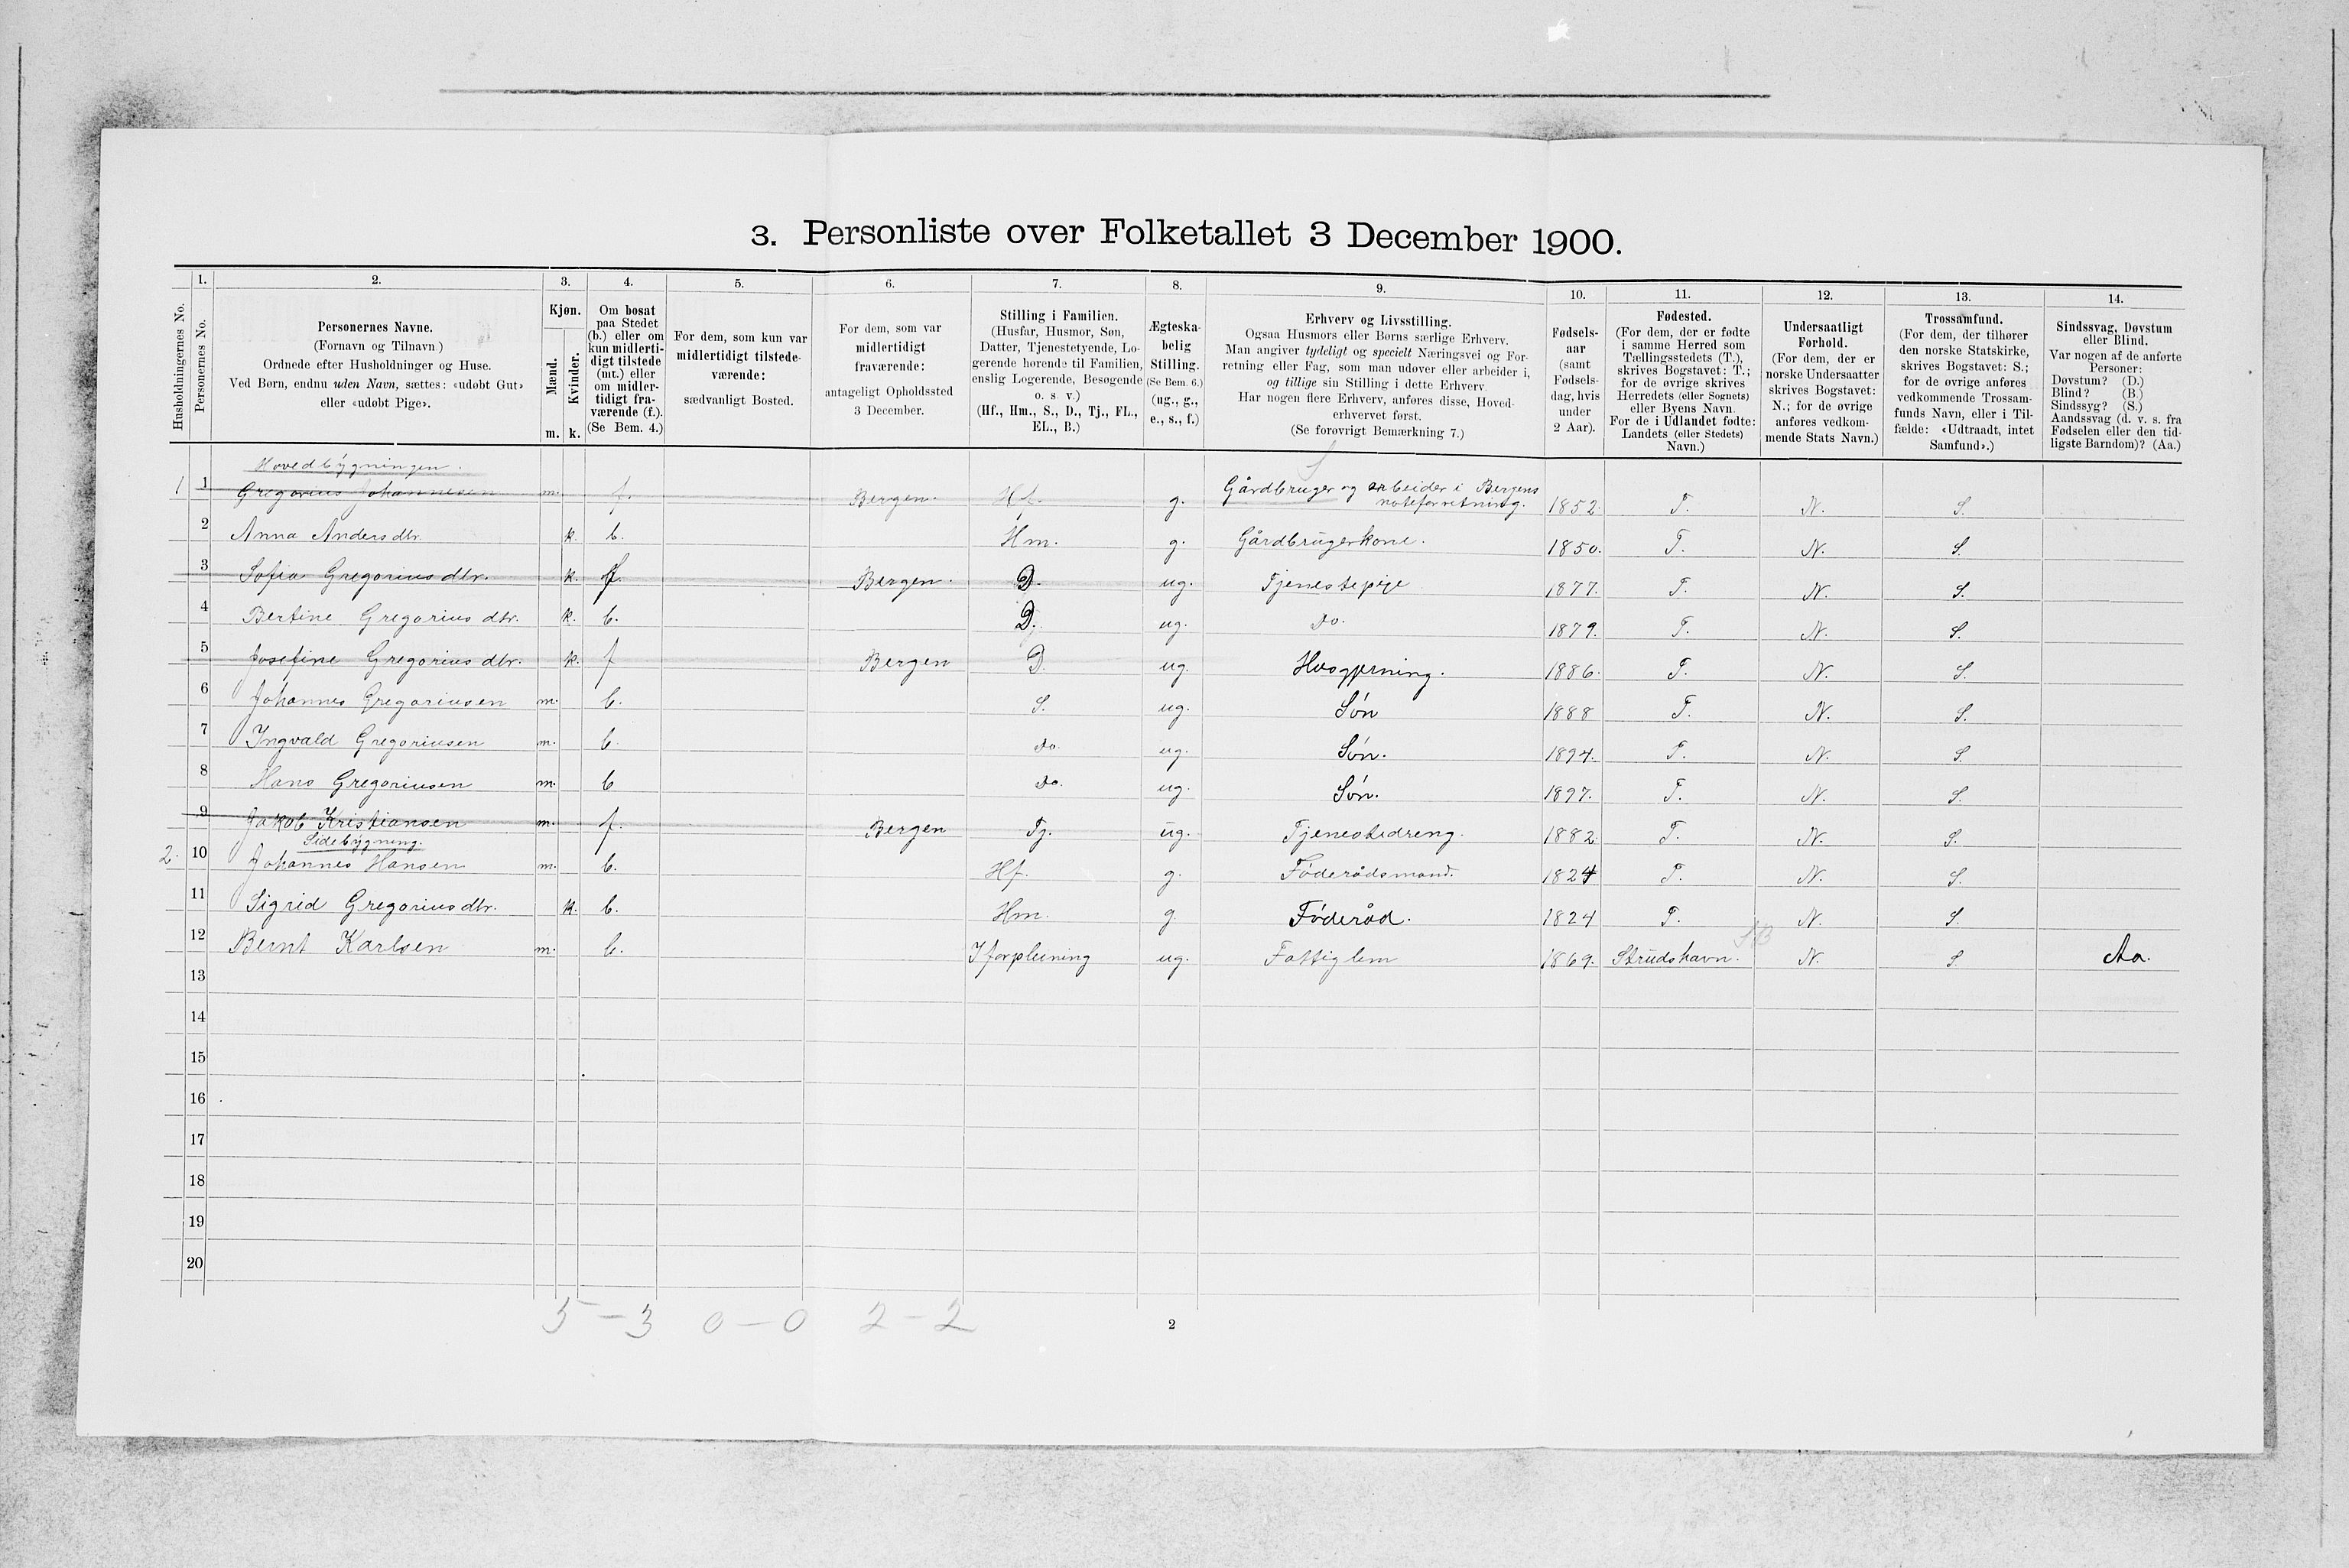 3. Personliste over Folketallet 3 December 1900.
1. 2. 3. 4. 5. 6. 7. 8. 9. 10. 11. 12. 13. 14.
Husholdningernes No.
Personernes No.
Personernes Navne.
(Fornavn og Tilnavn)
Ordnede efter Husholdninger og Huse.
Ved Børn, endnu uden Navn, sættes: «udøbt Gut»
eller «udøbt Pige».
Kjøn.
Mænd.
Kvinder.
m. k.
Om bosat
paa Stedet
(b.) eller om
kun midlerti-
digt tilstede
(mt.) eller
om midler-
tidigt fra-
værende (f.).
(Se Bem. 4.)
For dem, som kun var
midlertidigt tilstede-
værende:
sædvanligt Bosted.
For dem, som var
midlertidigt
fraværende:
antageligt Opholdssted
3 December.
Stilling i Familien.
(Husfar, Husmor, Søn,
Datter, Tjenestetyende, Lo-
gerende hørende til Familien,
enslig Logerende, Besøgende
o. s. v.)
(Hf., Hm., S., D., Tj., FL.,
EL., B.)
Ægteska-
belig
Stilling.
(Se Bem. 6.)
(ug., g.,
e., s., f.)
Erhverv og Livsstilling.
Ogsaa Husmors eller Børns særlige Erhverv.
Man angiver tydeligt og specielt Næringsvei og For-
retning eller Fag, som man udøver eller arbeider i,
og tillige sin Stilling i dette Erhverv.
Har nogen flere Erhverv, anføres disse, Hoved-
erhvervet først.
(Se forøvrigt Bemærkning 7.)
Fødsels-
aar
(samt
Fødsels-
dag, hvis
under
2 Aar).
Fødested.
(For dem, der er fødte
i samme Herred som
Tællingsstedets (T.),
skrives Bogstavet: T.;
for de øvrige skrives
Herredets (eller Sognets)
eller Byens Navn.
For de i Udlandet fødte:
Landets (eller Stedets)
Navn.)
Undersaatligt
Forhold.
(For dem, der er
norske Undersaatter
skrives Bogstavet:
N.; for de øvrige
anføres vedkom-
mende Stats Navn.)
Trossamfund.
(For dem, der tilhører
den norske Statskirke,
skrives Bogstavet: S.;
for de øvrige anføres
vedkommende Trossam-
funds Navn, eller i Til-
fælde: «Udtraadt, intet
Samfund».)
Sindssvag, Døvstum
eller Blind.
Var nogen af de anførte
Personer:
Døvstum? (D.)
Blind? (B.)
Sindssyg? (S.)
Aandssvag (d. v. s. fra
Fødselen eller den tid-
ligste Barndom)? (Aa.)
Hovedbygningen.
1 1 Gregorius Johannesen m. f. Bergen. Hf. g. Gårdbruger og arbeider i Bergens
noteforretning. 1852. T. N. S.
2 Anna Andersdtr. k. b. Hm. g. Gårdbrugerkone. 1850. T. N. S.
3 Sofia Gregoriusdtr. k. f. Bergen. D. ug. Tjenestepige 1877. T. N. S.
4 Bertine Gregoriusdtr. k. b. D. ug. do. 1879. T. N. S.
5 Josefine Gregoriusdtr. k. f Bergen D. ug. Husgjerning. 1886. T. N. S.
6 Johannes Gregoriusen m. b. S. ug. Søn 1888 T. N. S.
7 Ingvald Gregoriusen m. b. do. ug. Søn. 1894. T. N. S.
8 Hans Gregoriusen m. b do. ug. Søn. 1897. T. N. S.
9 Jakob Kristiansen m. f. Bergen Tj. ug. Tjenestedreng. 1882. T. N. S.
Sidebygning.
2. 10 Johannes Hansen m. b. Hf. g. Føderådsmand. 1824 T. N. S.
11 Sigrid Gregoriusdtr. k. b. Hm. g. Føderåd. 1824 T. N. S.
12 Bernt Karlsen m. b. I forpleining ug. Fattiglem 1869. Strudshavn. N. S. Aa.
13
14
15
16
17
18
19
20
5 – 3 0 – 0 2 – 2
2